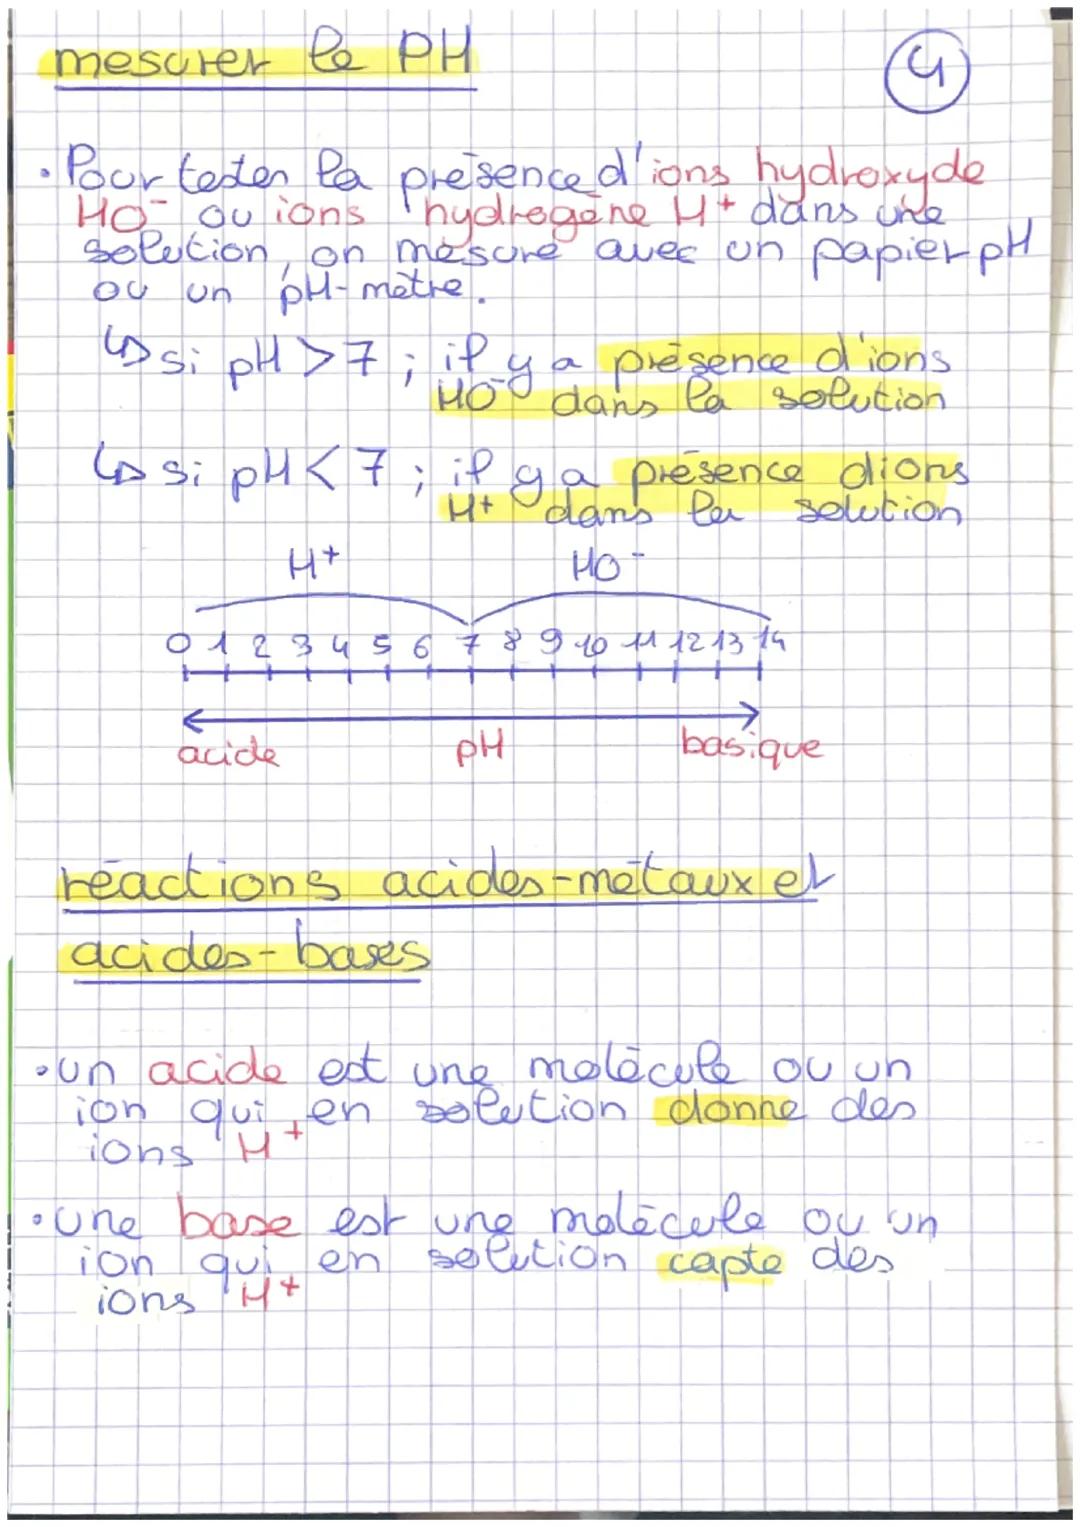 mesurer le PH
4
• Pour tester la présence d'ions hydroxyde
HO⁻ ou ions hydrogène H+ dans une
solution, on mesure avec un papier pH
ou un pH-mètre.
↳ si pH > 7 ; il y a présence d'ions
HO⁻ dans la solution
↳ si pH < 7 ; il y a présence d'ions
H+ dans la solution
H+ HO⁻
0 1 2 3 4 5 6 7 8 9 10 11 12 13 14
acide pH basique
réactions acides-métaux et
acides-bases
• un acide est une molécule ou un
ion qui en solution donne des
ions H+
• une base est une molécule ou un
ion qui en solution capte des
ions H+